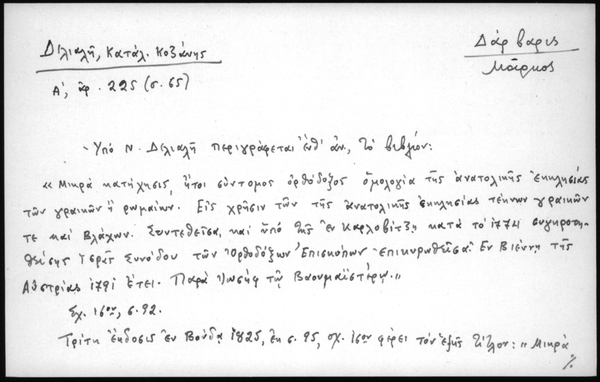 Δελιαλῆ, Κατάλ. Κοζάνης
Δάρβαρις
Μᾶρκος
Α', ἀρ. 225 (σ. 65)
Ὑπὸ Ν. Δελιαλῆ περιγράφεται ἐνθ' ἀν, τὸ βιβλίον:
« Μικρὰ κατήχησις, ἤτοι σύντομος ὀρθόδοξος ὁμολογία τῆς ἀνατολικῆς ἐκκλησίας
τῶν γραικῶν ἢ ρωμαίων. Εἰς χρῆσιν τῶν τῆς ἀνατολικῆς ἐκκλησίας τέκνων γραικῶν
τε καὶ Βλάχων. Συντεθεῖσα, καὶ ὑπὸ τῆς ἐν Καρλοβιτζίῳ κατὰ τὸ 1774 συγκροτη-
θείσης ἱερᾶς Συνόδου τῶν Ὀρθοδόξων Ἐπισκόπων ἐπικυρωθεῖσα. Ἐν Βιέννῃ τῆς
Αὐστρίας 1791 ἔτει. Παρὰ Ἰωσὴφ τῷ Βαουμαϊστέρῳ. »
Σχ. 16ον, σ. 92.
Τρίτη ἔκδοσις ἐν Βούδᾳ 1825, ἐκ σ. 95, σχ. 16ον φέρει τὸν ἑξῆς τίτλον: « Μικρὰ
./.